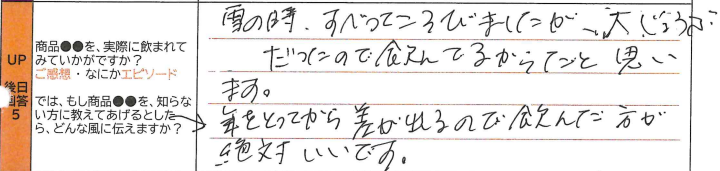 UP
後日
回答
5
商品●●を、実際に飲まれて
みていかがですか？
ご感想・なにかエピソード
では、もし商品●●を、知らな
い方に教えてあげるとした
ら、どんな風に伝えますか？
雪の時、すべってころびましたが、大じょうぶ
だったので飲んでるからだと思い
ます。
年をとってから差が出るので飲んだ方が
絶対いいです。